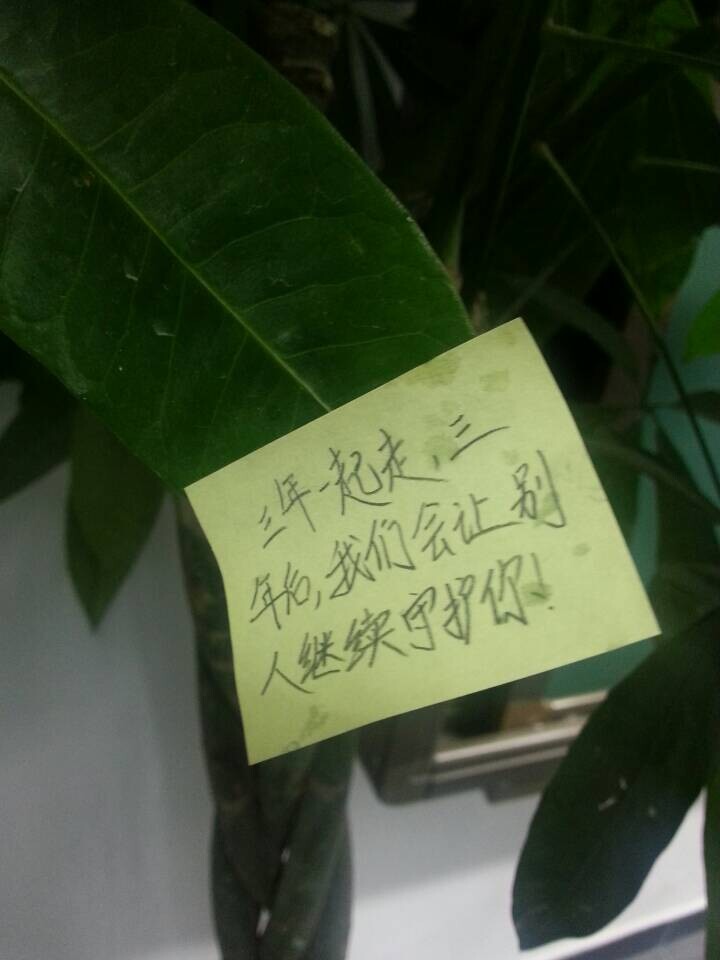 三年一起走,三
年后,我们会让别
人继续守护你!